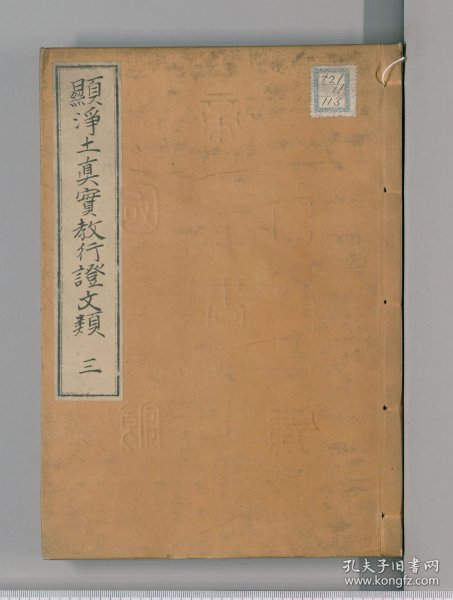 顯淨土真實教行證文類 三
821
11
115
孔夫子旧书网
www.kongfz.com